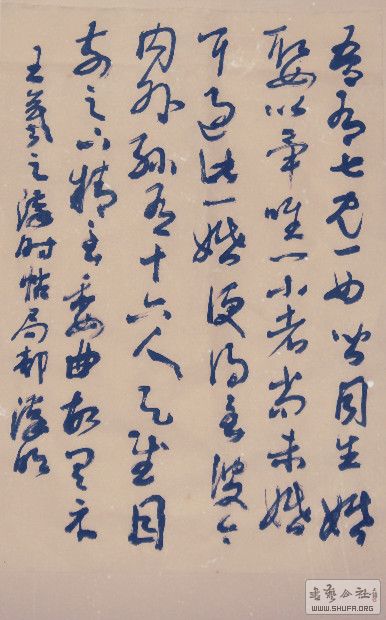 吾有七兒一女皆同生婚
娶以畢唯一小者尚未婚
耳過此一婚便得至彼今
內外孫有十六人足慰目
前足下情至委曲故具示
王羲之帖局部
書藝公社
WWW.SHUFA.ORG